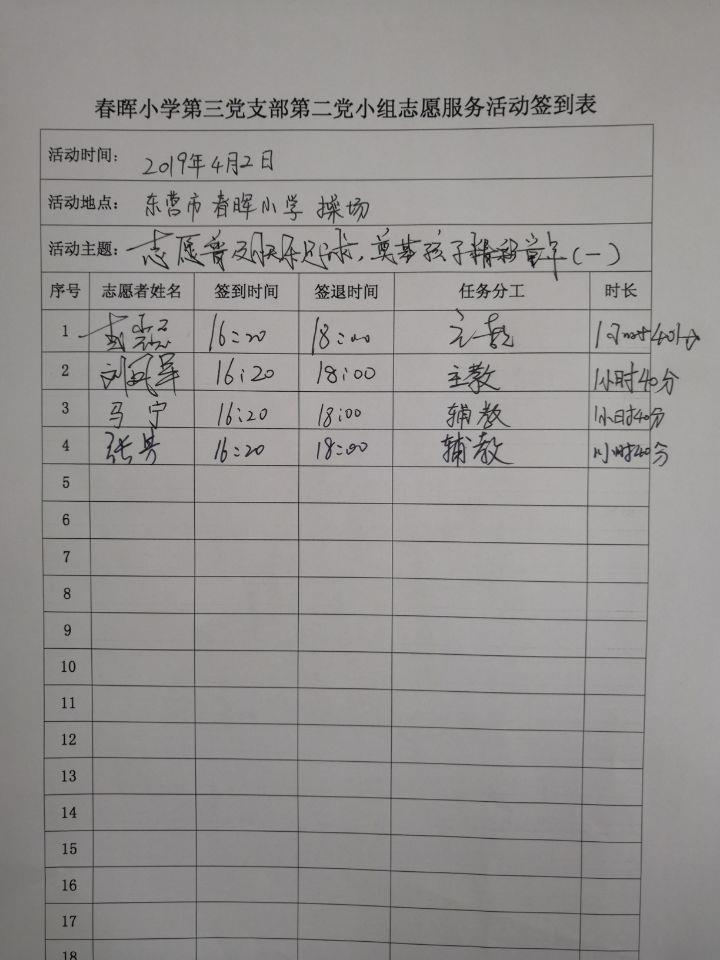 春晖小学第三党支部第二党小组志愿服务活动签到表
活动时间： 2019年4月2日
活动地点： 东营市春晖小学 操场
活动主题： 志愿普及快乐足球，奠基孩子精彩童年（一）
序号 志愿者姓名 签到时间 签退时间 任务分工 时长
1 16:20 18:00 主教 1小时40分
2 刘凤军 16:20 18:00 主教 1小时40分
3 马宁 16:20 18:00 辅教 1小时40分
4 16:20 18:00 辅教 1小时40分
5
6
7
8
9
10
11
12
13
14
15
16
17
18